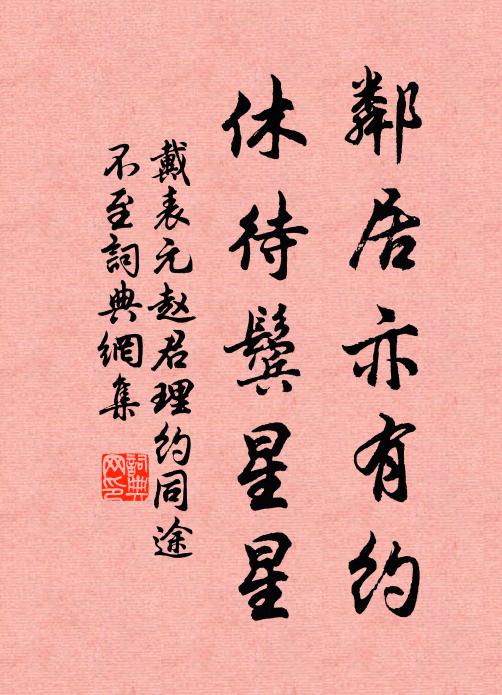 鄰居亦有約
休待鬢星星
戴表元赵君理約同途
不至詞典網集
詞典
网印